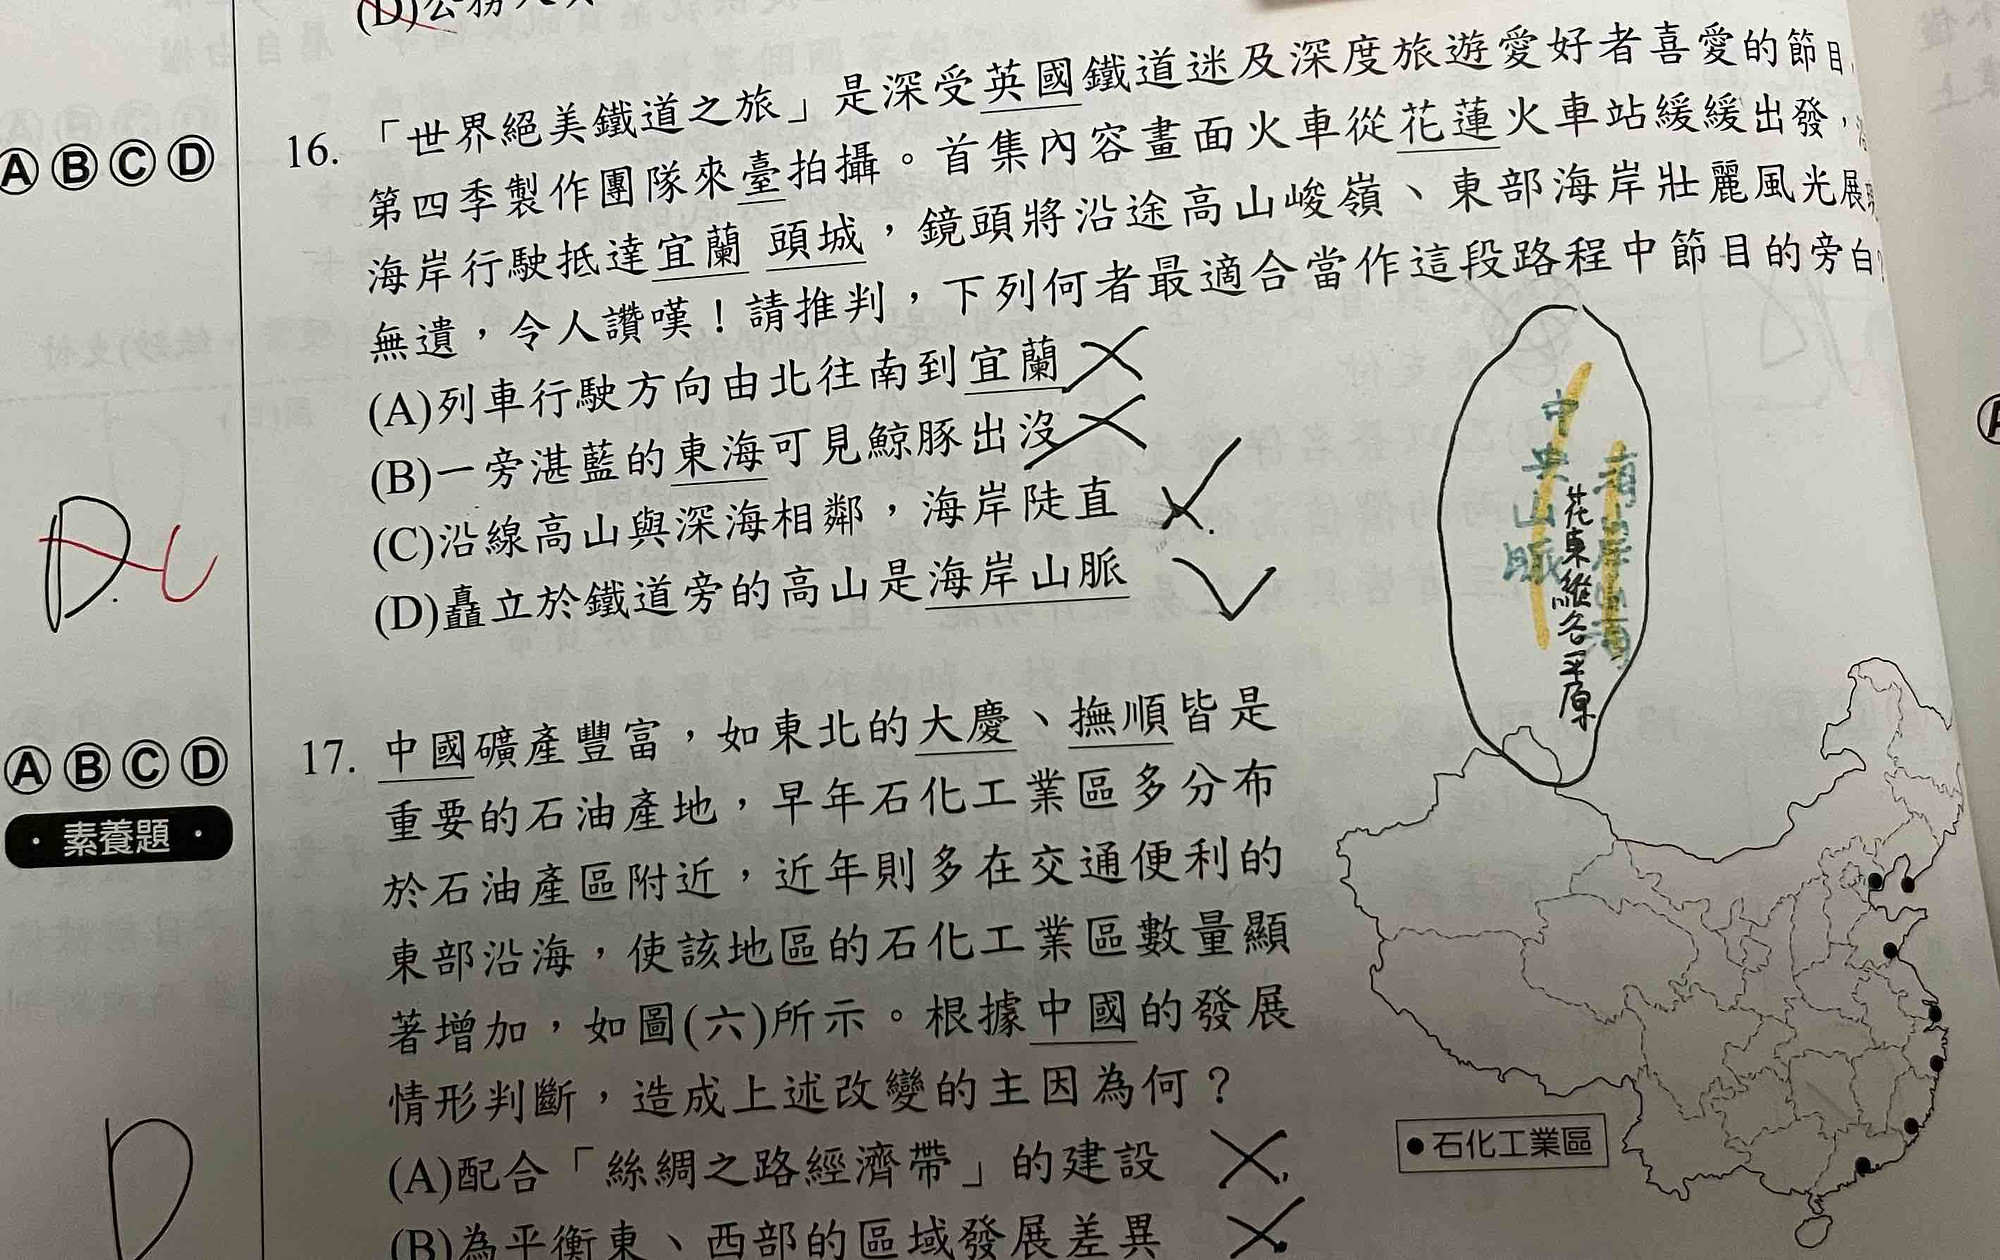 (D)公務人員
16. 「世界絕美鐵道之旅」是深受英國鐵道迷及深度旅遊愛好者喜愛的節目,
第四季製作團隊來臺拍攝。首集內容畫面火車從花蓮火車站緩緩出發,沿
海岸行駛抵達宜蘭 頭城,鏡頭將沿途高山峻嶺、東部海岸壯麗風光展現
無遺,令人讚嘆!請推判,下列何者最適合當作這段路程中節目的旁白?
(A)列車行駛方向由北往南到宜蘭
(B)一旁湛藍的東海可見鯨豚出沒
(C)沿線高山與深海相鄰,海岸陡直
(D)矗立於鐵道旁的高山是海岸山脈
ⒶⒷⒸⒹ
D C
中央山脈
花東縱谷平原
17. 中國礦產豐富,如東北的大慶、撫順皆是
重要的石油產地,早年石化工業區多分布
於石油產區附近,近年則多在交通便利的
東部沿海,使該地區的石化工業區數量顯
著增加,如圖(六)所示。根據中國的發展
情形判斷,造成上述改變的主因為何?
(A)配合「絲綢之路經濟帶」的建設
(B)為平衡東、西部的區域發展差異
ⒶⒷⒸⒹ
·素養題·
D
●石化工業區